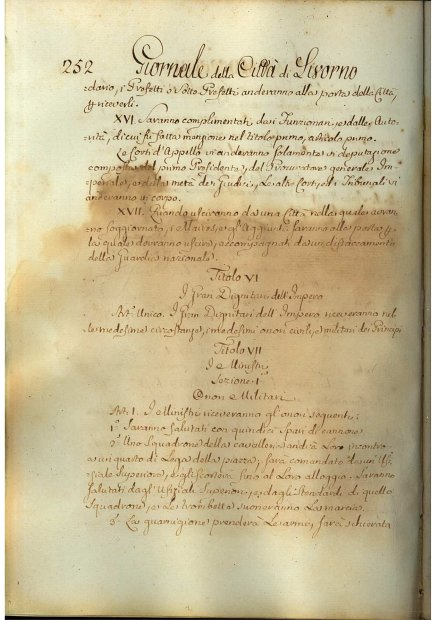 252 Giornale della Città di Livorno
:dario, i Prefetti o Sotto Prefetti anderanno alla porta della Città,
riceverli.
XVI. Saranno complimentati dai Funzionari e dalle Auto-
rità, di cui fu fatta menzione nel titolo primo, articolo primo.
Le Corti d'Appello vi anderanno solamente in deputazione
composta del primo Presidente, del Procuratore generale Im-
periale, e della metà dei Giudici, Le altre Corti, ed i Tribunali vi
anderanno in corpo.
XVII. Quando usciranno da una Città nella quale avran-
no soggiornato, i Maires, e gl'Aggiunti saranno alla porta
la quale dovranno uscire, accompagnati da un distaccamento
della Guardia nazionale.
Titolo VI
I Gran Dignitari dell'Impero
Art. Unico. I Gran Dignitari dell'Impero riceveranno nel-
le medesime circostanze, i medesimi onori civili, e militari dei Principi
Titolo VII
I Ministri
Sezione I
Onori Militari
Art. 1. I Ministri riceveranno gl'onori seguenti:
1° Saranno salutati con quindici spari di cannone
2° Uno Squadrone della cavalleria andrà Loro incontro
a un quarto di Lega della piazza, sarà comandato da un Uf-
fiziale Superiore, e gli scorterà fino al Loro alloggio. Saranno
salutati dagl'Uffiziali Superiori, e dagli Stendardi di quello
Squadrone, e Le trombette suoneranno La marcia.
3° La guarnigione prenderà Le armi, sarà schierata